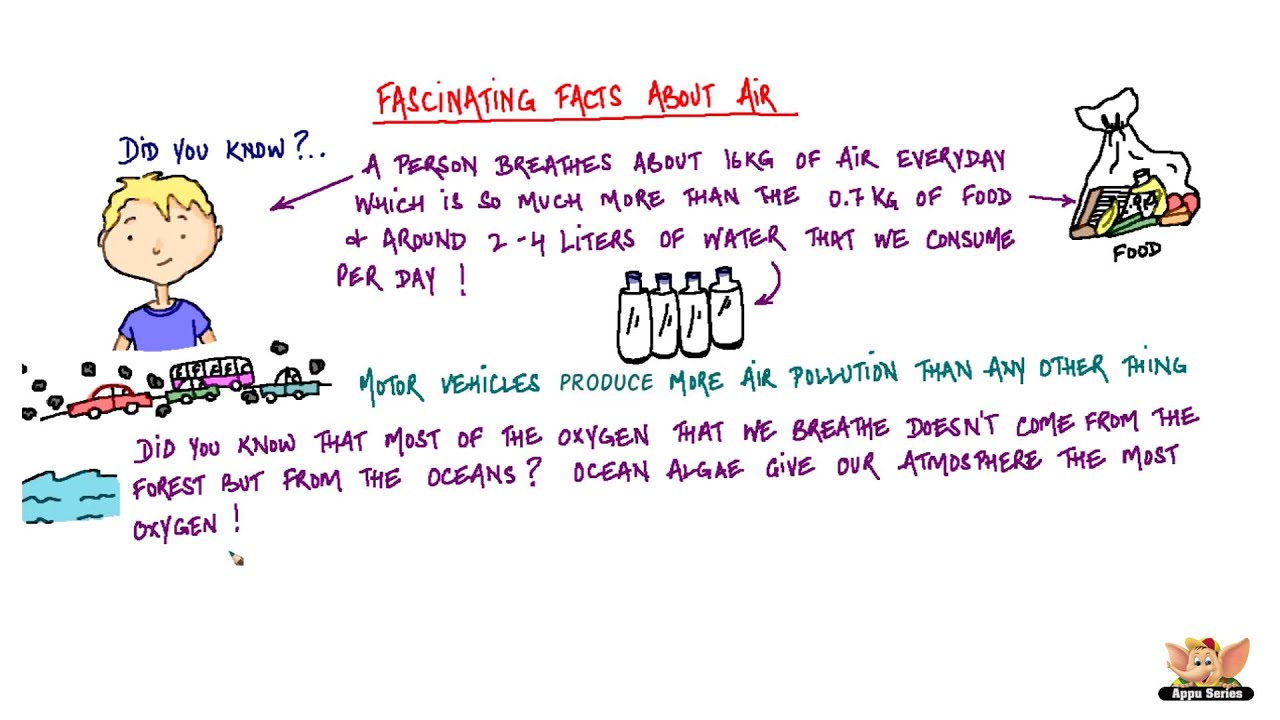 FASCINATING FACTS ABOUT AIR
DID YOU KNOW?..
A PERSON BREATHES ABOUT 16KG OF AIR EVERYDAY
WHICH IS SO MUCH MORE THAN THE 0.7 KG OF FOOD
& AROUND 2-4 LITERS OF WATER THAT WE CONSUME
PER DAY !
FOOD
MOTOR VEHICLES PRODUCE MORE AIR POLLUTION THAN ANY OTHER THING
DID YOU KNOW THAT MOST OF THE OXYGEN THAT WE BREATHE DOESN'T COME FROM THE
FOREST BUT FROM THE OCEANS? OCEAN ALGAE GIVE OUR ATMOSPHERE THE MOST
OXYGEN !
Appu Series